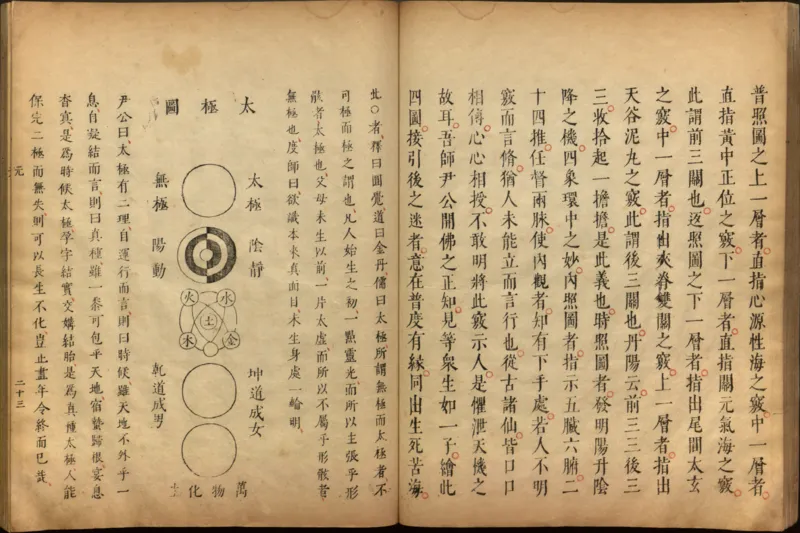 普照圖之上一層者直指心源性海之竅中一層者
直指黃中正位之竅下一層者直指關元氣海之竅
此謂前三關也返照圖之下一層者指出尾閭太玄
之竅中一層者指出夾脊雙關之竅上一層者指出
天谷泥丸之竅此謂後三關也丹陽云前三三後三
三收拾起一擔擔是此義也時照圖者發明陽升陰
降之機四象環中之妙內照圖者指示五臟六腑二
十四推任督兩脉使內觀者知有下手處若人不明
竅而言脩猶人未能立而言行也從古諸仙皆口口
相傳心心相授不敢明將此竅示人是懼泄天機之
故耳吾師尹公開佛之正知見等衆生如一子繪此
四圖接引後之迷者意在普度有緣同出生死苦海
此〇者釋曰圓覺道曰金丹儒曰太極所謂無極而太極者不
可極而極之謂也凡人始生之初一點靈光而所以主張乎形
骸者太極也父母未生以前一片太虛而所以不屬乎形骸者
無極也度師曰欲識本來真面目未生身處一輪明
太極圖
太極 陰靜
無極 陽動
火 水
土
木 金
坤道成女
乾道成男
萬物化生
尹公曰太極有二理自運行而言則曰時候雖天地不外乎一
息自凝結而言則曰真種雖一黍可包乎天地宿蟄歸根宴息
杳冥是為時候太極孳字結實交媾結胎是為真種太極人能
保完二極而無失則可以長生不化豈止盡年令終而已哉
元
二十三